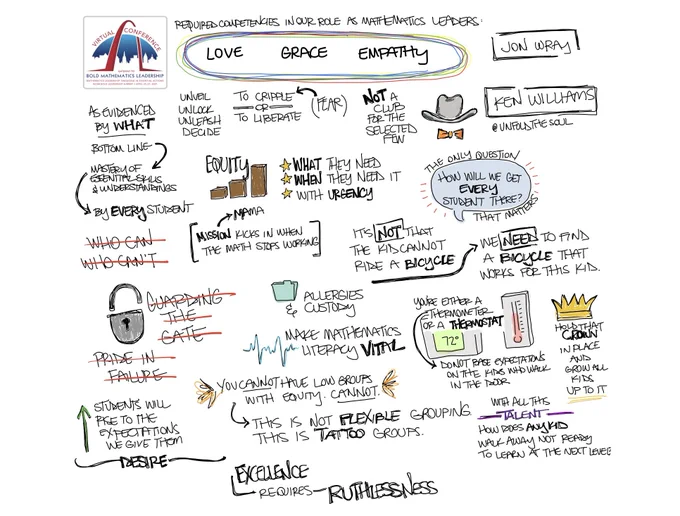 VIRTUAL CONFERENCE
BOLD MATHEMATICS LEADERSHIP
REQUIRED COMPETENCIES IN OUR ROLE AS MATHEMATICS LEADERS:
LOVE GRACE EMPATHY
JON WRAY
KEN WILLIAMS
@UNFOLDTHESOUL
AS EVIDENCED
BY WHAT
BOTTOM LINE
MASTERY OF
ESSENTIAL SKILLS
& UNDERSTANDINGS
BY EVERY STUDENT
UNVEIL
UNLOCK
UNLEASH
DECIDE
TO CRIPPLE
OR
TO LIBERATE
(FEAR)
NOT A
CLUB
FOR THE
SELECTED
FEW
EQUITY
WHAT THEY NEED
WHEN THEY NEED IT
WITH URGENCY
THE ONLY QUESTION
HOW WILL WE GET
EVERY
STUDENT THERE?
THAT MATTERS
MAMA
MISSION KICKS IN WHEN
THE MATH STOPS WORKING
IT'S NOT THAT
THE KID CANNOT
RIDE A BICYCLE
WE NEED TO FIND
A BICYCLE THAT
WORKS FOR THIS KID.
WHO CAN
WHO CAN'T
GUARDING
THE
GATE
PRIDE IN
FAILURE
ALLERGIES
& CUSTODY
MAKE MATHEMATICS
LITERACY VITAL
YOU'RE EITHER A
THERMOMETER
OR A THERMOSTAT
72°
DO NOT BASE EXPECTATIONS
ON THE KIDS WHO WALK
IN THE DOOR
HOLD THAT
CROWN
IN PLACE
AND
GROW ALL
KIDS
UP TO IT
YOU CANNOT HAVE LOW GROUPS
WITH EQUITY. CANNOT.
THIS IS NOT FLEXIBLE GROUPING.
THIS IS TATTOO GROUPS.
STUDENTS WILL
RISE TO THE
EXPECTATIONS
WE GIVE THEM
DESIRE
WITH ALL THIS
TALENT
HOW DOES ANY KID
WALK AWAY NOT READY
TO LEARN AT THE NEXT LEVEL
EXCELLENCE
REQUIRES RUTHLESSNESS